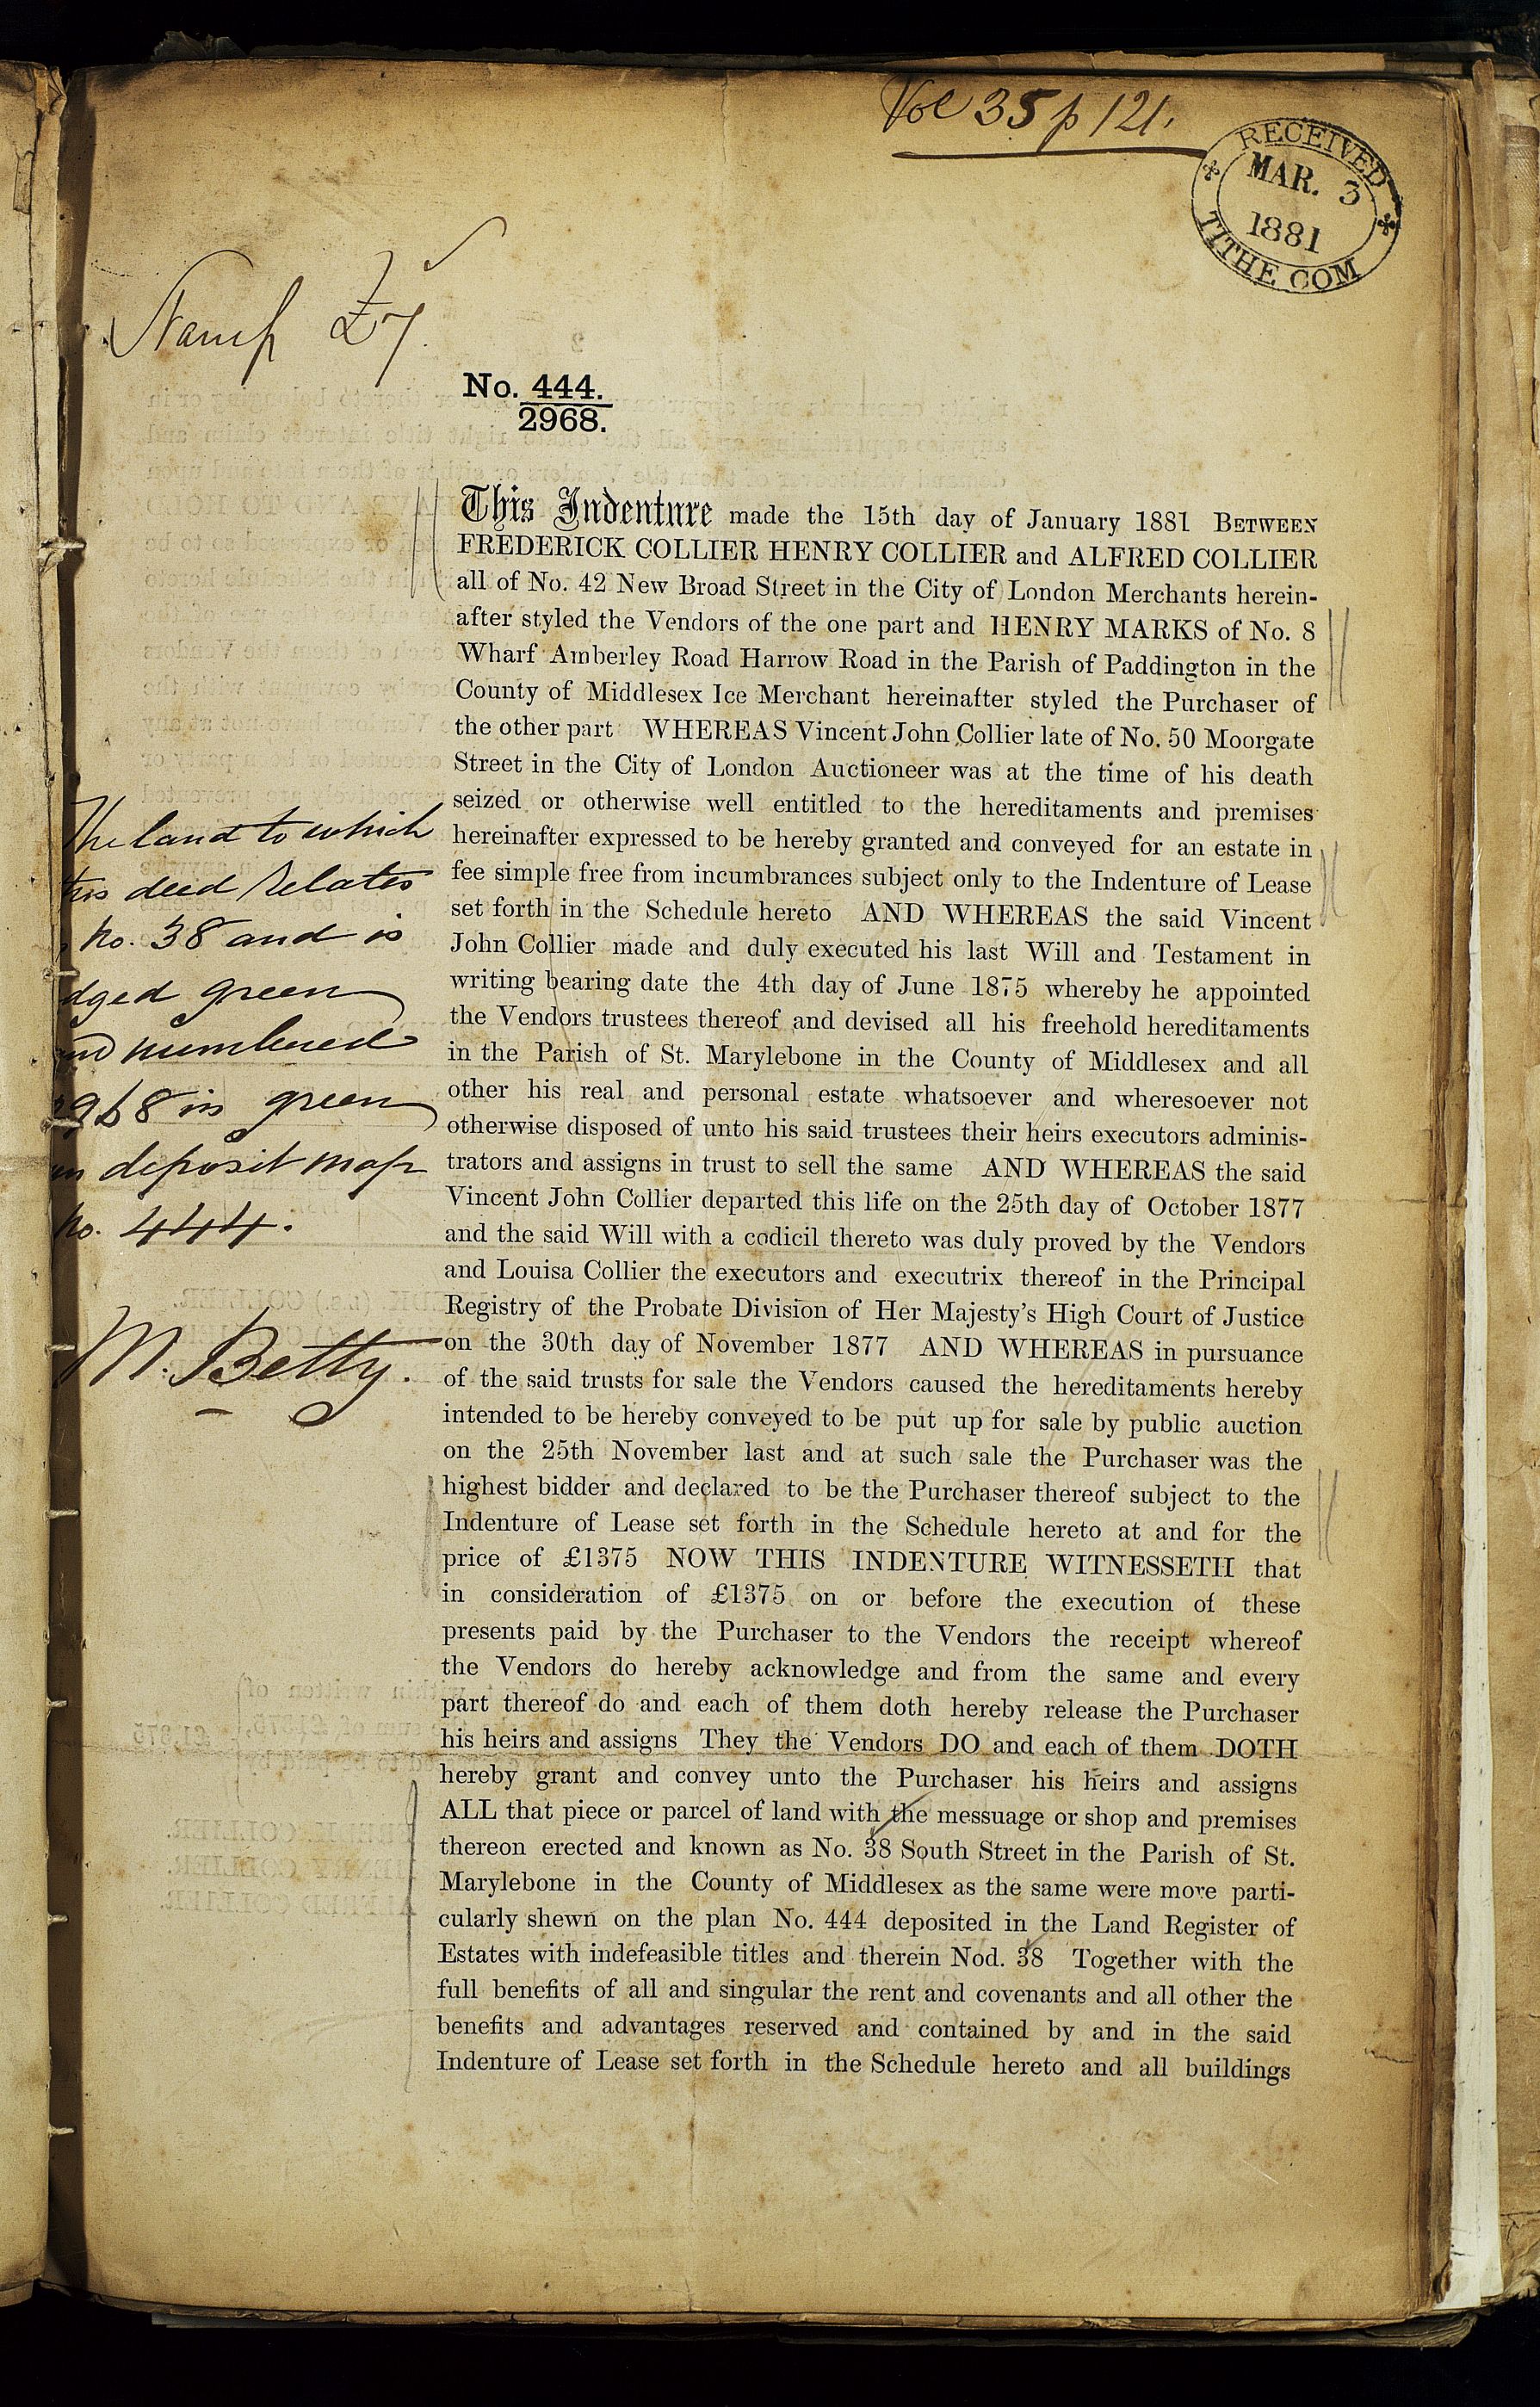 Vol 35 p 121.
RECEIVED
MAR. 3
1881
TITHE COM
Stamp £7.
No. 444.
2968.
This Indenture made the 15th day of January 1881 BETWEEN
FREDERICK COLLIER HENRY COLLIER and ALFRED COLLIER
all of No. 42 New Broad Street in the City of London Merchants herein-
after styled the Vendors of the one part and HENRY MARKS of No. 8
Wharf Amberley Road Harrow Road in the Parish of Paddington in the
County of Middlesex Ice Merchant hereinafter styled the Purchaser of
the other part WHEREAS Vincent John Collier late of No. 50 Moorgate
Street in the City of London Auctioneer was at the time of his death
seized or otherwise well entitled to the hereditaments and premises
hereinafter expressed to be hereby granted and conveyed for an estate in
fee simple free from incumbrances subject only to the Indenture of Lease
set forth in the Schedule hereto AND WHEREAS the said Vincent
John Collier made and duly executed his last Will and Testament in
writing bearing date the 4th day of June 1875 whereby he appointed
the Vendors trustees thereof and devised all his freehold hereditaments
in the Parish of St. Marylebone in the County of Middlesex and all
other his real and personal estate whatsoever and wheresoever not
otherwise disposed of unto his said trustees their heirs executors adminis-
trators and assigns in trust to sell the same AND WHEREAS the said
Vincent John Collier departed this life on the 25th day of October 1877
and the said Will with a codicil thereto was duly proved by the Vendors
and Louisa Collier the executors and executrix thereof in the Principal
Registry of the Probate Division of Her Majesty's High Court of Justice
on the 30th day of November 1877 AND WHEREAS in pursuance
of the said trusts for sale the Vendors caused the hereditaments hereby
intended to be hereby conveyed to be put up for sale by public auction
on the 25th November last and at such sale the Purchaser was the
highest bidder and declared to be the Purchaser thereof subject to the
Indenture of Lease set forth in the Schedule hereto at and for the
price of £1375 NOW THIS INDENTURE WITNESSETH that
in consideration of £1375 on or before the execution of these
presents paid by the Purchaser to the Vendors the receipt whereof
the Vendors do hereby acknowledge and from the same and every
part thereof do and each of them doth hereby release the Purchaser
his heirs and assigns They the Vendors DO and each of them DOTH
hereby grant and convey unto the Purchaser his heirs and assigns
ALL that piece or parcel of land with the messuage or shop and premises
thereon erected and known as No. 38 South Street in the Parish of St.
Marylebone in the County of Middlesex as the same were more parti-
cularly shewn on the plan No. 444 deposited in the Land Register of
Estates with indefeasible titles and therein Nod. 38 Together with the
full benefits of all and singular the rent and covenants and all other the
benefits and advantages reserved and contained by and in the said
Indenture of Lease set forth in the Schedule hereto and all buildings
The land to which
this deed relates
No. 38 and is
dged green
and numbered
2968 in green
on deposit map
No. 444.
M. Betty.